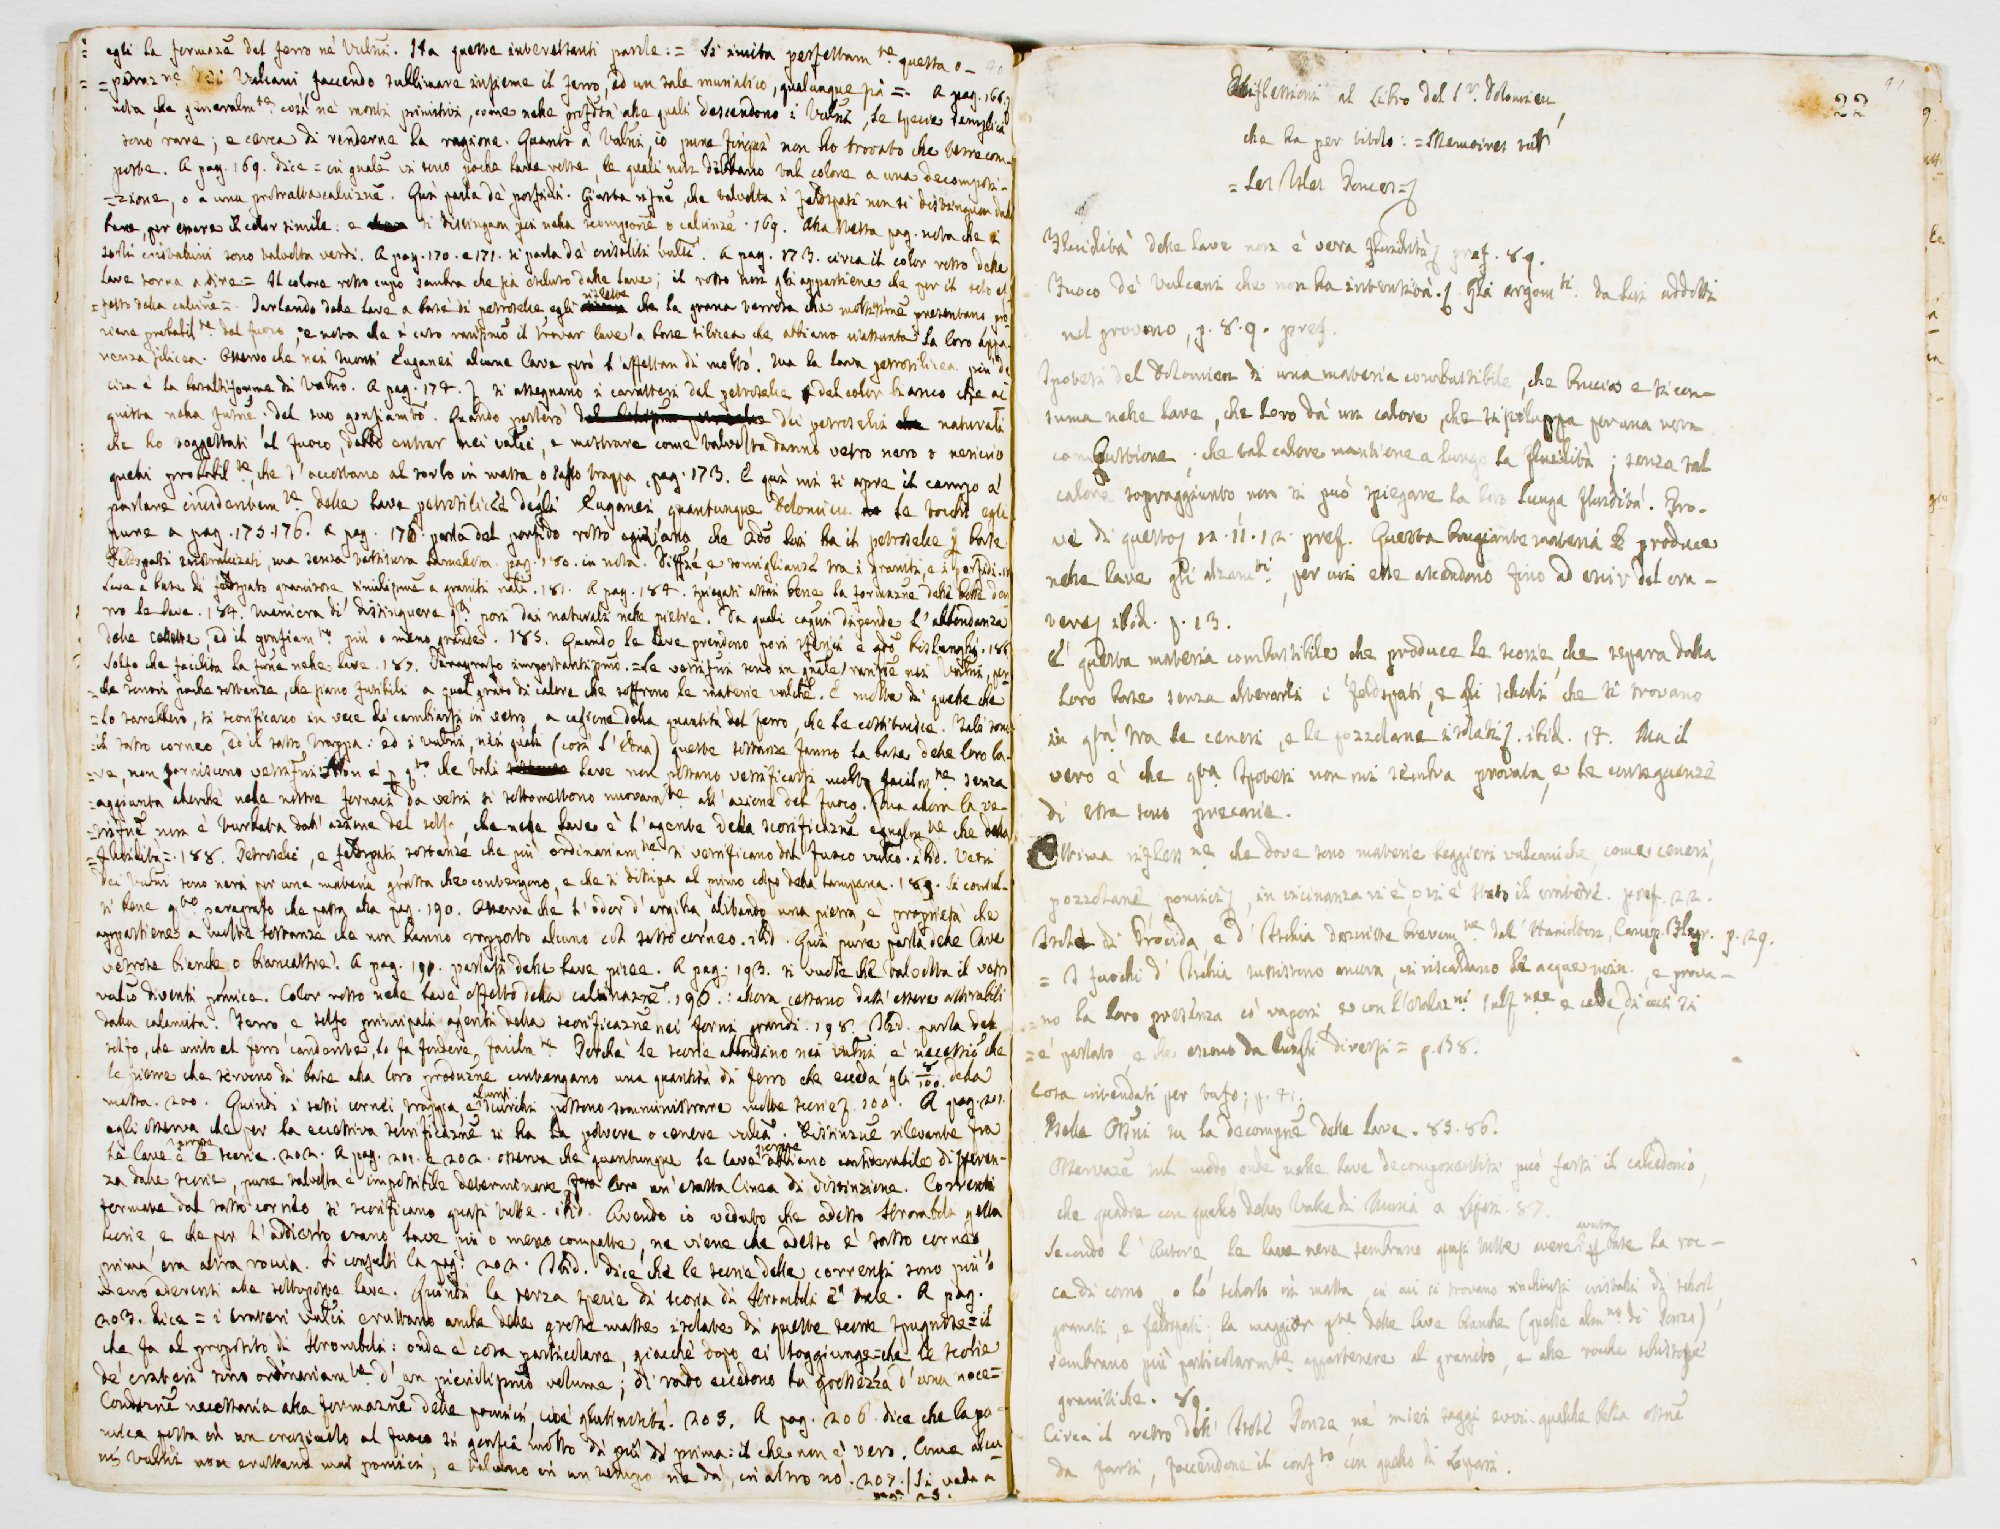 egli la formazẽ del ferro ne' Vulcñi. Ha queste interessanti parole: = Si imita perfettam.te questa o-
= peraz.ne dei Vulcani, facendo sublimare insieme il ferro, ed un sale muriatico, qualunque sia =. A pag. 166.
nota che generalm.te così ne' monti primitivi, come nelle profdità alle quali discendono i Vulcñi, le specie semplici
sono rare; e cerca di renderne la ragione. Quanto a' Vulcñi, io pure finquì non ho trovato che terre com-
poste. A pag. 169. dice = in gnale vi sono poche lave rosse, le quali non debbano tal colore a una decomposi-
= zione, o a una protratta calcinzñe. Quì parla de' porfidi. Giusta rifñe, che talvolta i feldspati non si distinguon dalla
base, per essere il color simile: e si distinguon poi nella scompsizñe o calcinzñe. 169. Alla stessa pag. nota che i
sorli cristallini sono talvolta verdi. A pag. 170. e 171. si parla de' cristalli vulcñi. A pag. 173. circa il color rosso delle
lave torna a dire = Il colore rosso cupo sembra che sia escluso dalle lave; il rosso non gli appartiene che per il solo ef
= fetto della calcinzñe =. Parlando delle lave a base di petroselce egli riflette che la grana terrosa che moltissñe presentano pro
viene probabil.te dal fuoco; e nota che è caso rarissimo il trovar lave a base silicea che abbiano riassunta la loro appa-
renza silicea. Osservo che nei Monti Euganei alcune lave però l'affettan di molto. Ma la lava petrosilicea più de
cisa è la basaltiforme di Vulcño. A pag. 174. si assegnano i caratteri del petroselce e del color bianco che ac
quista nella fusñe, del suo gonfiamto. Quando parlerò dei petroselci naturali
che ho soggettati al fuoco, debbo entrar nei vulcñi, e mostrare come talvolta danno vetro nero o nericcio
quelli probabil.te che s'accostano al sorlo in massa o sasso trappa. pag. 173. E quì mi si apre il campo a
parlare incidentem.te delle lave petrosilicee degli Euganei quantunque Dolomieu le tocchi egli
pure a pag. 175. 176. A pag. 178 parla del porfido rosso egiziano che sedo lui ha il petroselce p base
Feldspati cristallizzati, ma senza tessitura lamellosa. pag. 180. in nota. Diffze, e somiglianze tra i graniti, e i porfidi
Lave a base di feldspato granitose similissime a graniti natli. 181. A pag. 184. spiegati assai bene la formazñe delle bolle den
tro le lave. 184. Maniera di distinguere qti pori dai naturali nelle pietre. Da quali cagioni dipende l'abbondanza
delle cellette ed il gonfiam.to più o meno grande. 185. Quando le lave prendono pori sferici e qdo bislunghi. 186
Solfo che facilita la fusñe nelle lave. 187. Paragrafo importantissimo. = Le vetrifñi sono in gnale rarissñe nei Vulcñi, per-
= che sonovi poche sostanze, che siano fusibili a quel grado di calore che soffrono le materie vulche. E molte di quelle che
= lo sarebbero, si scorificano in vece di cambiarsi in vetro, a cagione della quantità del ferro, che le costituisce. Tali sono
= il sasso corneo, ed il sasso trappa: ed i vulcñi, nei quali (così l'Etna) queste sostanze fanno la base delle loro la-
= ve, non forniscono vetrifñi. Non è p qto che tali lave non possano vetrificarsi molto facilm.te senza
= aggiunta allorchè nelle nostre fornaci da vetri si sottomettono nuovam.te all'azione del fuoco. Ma allora la ve-
= trifñe non è turbata dall'azione del solfo, che nelle lave è l'agente della scorificazñe egualm.te che della
= fluidità =. 188. Petroselci, e feldspati sostanze che più ordinariam.te si vetrificano dal fuoco vulco. ibid. Vetri
dei Vulcñi sono neri per una materia grassa che contengono, e che si dissipa al primo colpo della lampana. 189. Si consul-
ti bene qto paragrafo che passa alla pag. 190. Osserva che l'odor d'argilla alitando una pietra, è proprietà che
appartiene a molte sostanze che non hanno rapporto alcuno col sasso corneo. ibid. Quì pure parla delle lave
vetrose bianche o biancastre. A pag. 191. parlasi delle lave picee. A pag. 193. si vuole che talvolta il vetro
vulco diventi pomice. Color rosso nelle lave, effetto della calcinazñe. 196.: allora cessano dall'essere attirabili
dalla calamita. Ferro e solfo principali agenti della scorificazñe nei forni grandi. 198. Ibid. parla del
solfo, che unito al ferro candente, lo fa fondere, facilm.te. Perchè le scorie abbondino nei Vulcñi è necessrio che
le pietre che servono di base alla loro produzñe contengano una quantità di ferro che ecceda gli 8/100. della
massa. 200. Quindi i sassi cornei, trappa, e alcuni scherli possono somministrare molte scorie. 200. A pag. 201.
egli osserva che per la eccessiva scorificazñe si ha la polvere o cenere vulca. Distinzñe rilevante fra
le lave e le scorie. 202. A pag. 201. e 202. osserva che quantunque le lave abbiano considerabile differen-
za dalle scorie, pure talvolta è impossibile determinare fra loro un'esatta linea di distinzione. Correnti
formate dal sasso corneo si scorificano quasi tutte. ibid. Avendo io veduto che adesso Stromboli getta
scorie e che per l'addietro erano lave più o meno compatte, ne viene che adesso è sasso corneo,
prima era altra roccia. Si consulti la pag. 202. Ibid. dice che le scorie delle correnti sono più o
meno aderenti alle sottoposte lave. Quindi la terza specie di scoria di Stromboli è tale. A pag.
203. dice = i crateri vulci eruttano anche delle grosse masse isolate di queste scorie spugnose = il
che fa al proposito di Stromboli: onde è cosa particolare, giacchè dopo ei soggiunge = che le scorie
de' crateri sono ordinariam.te d'un piccolissimo volume; di rado eccedono la grossezza d'una noce =
Condizñe necessaria alla formazñe delle pomici, cioè glutinosità. 203. A pag. 206. dice che la po-
mice posta in un crogiuolo al fuoco si gonfia molto di più di prima: il che non è vero. Come alcu-
ni Vulcñi non eruttano mai pomici, e talvno in un tempo ne dà, in altro no. 207. / Si veda a
pag. 23.
22
91
Riflessioni al Libro del Sr. Dolomieu
che ha per titolo: = Memoires sur
= Les Isles Ponces =
Fluidità delle lave non è vera fluidità pref. 89.
Fuoco de' Vulcani che non ha intensità. Gli argom.ti da lui addotti
nel provarlo, p. 8. 9. pref.
Ipotesi del Dolomieu di una materia combustibile, che brucia e si con-
suma nelle lave, che loro dà un calore, che si sviluppa per una vera
combustione, che tal calore mantiene a lungo la fluidità; senza tal
calore sopraggiunto, non si può spiegare la loro lunga fluidità. Pro-
ve di questo 12. 11. 12. pref. Questa bruciante materia produce
nelle lave gli alzam.ti, per cui esse ascendono fino ad escir del cra-
tere ibid. p. 13.
È questa materia combustibile che produce le scorie, che separa dalla
loro base senza alterarli i feldspati, e gli scherli, che si trovano
in qtà tra le ceneri, e le pozzolane isolati. ibid. 14. Ma il
vero è che qta ipotesi non mi sembra provata, e le conseguenze
di essa sono precarie.
Ottima rifless.ne che dove sono materie leggieri vulcaniche, come ceneri,
pozzolane, pomici, in vicinanza vi è o vi è stato il cratere. pref. 22.
Isole di Procida, e d'Ischia descritte brevem.te dall'Hamilton, Camp. Flegr. p. 29.
= I fuochi d'Ischia sussistono ancora, vi riscaldano le acque min. e prova-
= no la loro presenza co' vapori e con l'esalaz.ni sulf.ree e calde, di cui si
= è parlato e che escono da luoghi diversi = p. 138.
Cosa intendasi per tufo; p. 41.
Belle Ossñi su la decompñe delle lave. 85. 86.
Osservazñe sul modo onde nelle lave decomponentisi può farsi il calcedonio,
che quadra con quello della Valle di Muria a Lipari. 87.
Secondo l'Autore, le lave nere sembrano quasi tutte avere avuta per base la roc-
ca di corno, o lo scherlo in massa, in cui si trovano rinchiusi cristalli di scherl,
granati, e feldspati; la maggior pte delle lave bianche (quelle alm.no di Ponza)
sembrano più particolarm.te appartenere al granito, e alle rocche schistose
granitiche. 89.
Circa il vetro dell'Isola Ponza, ne' miei saggi evvi qualche bella ossñe
da farsi, facendone il conf.to con quello di Lipari.